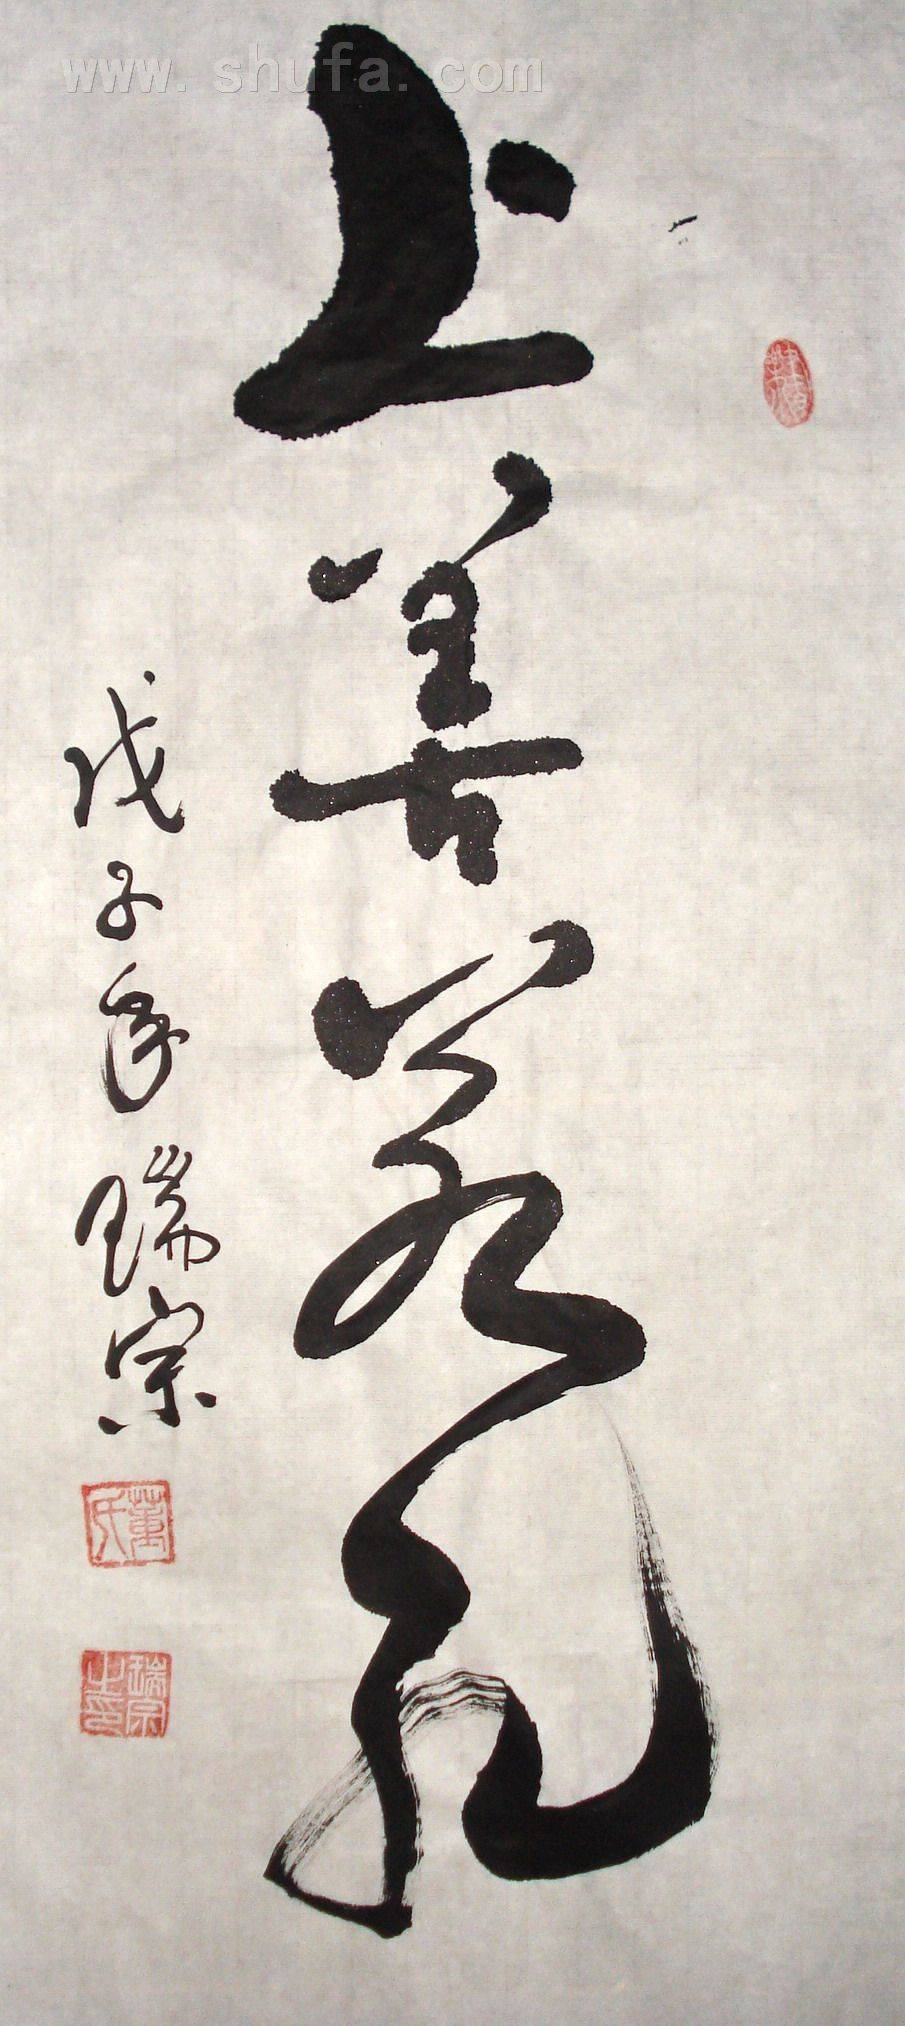 www.shufa.com
上善若水
戊子年瑞宗
瑞宗之印